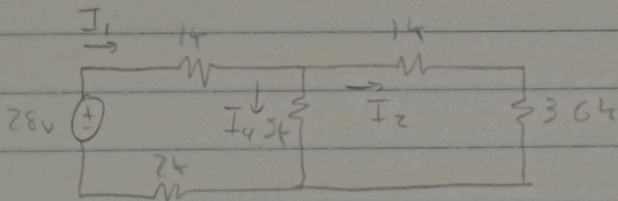 I₁
1k
1k
28v
I₄
5k
I₂
3.6k
2k